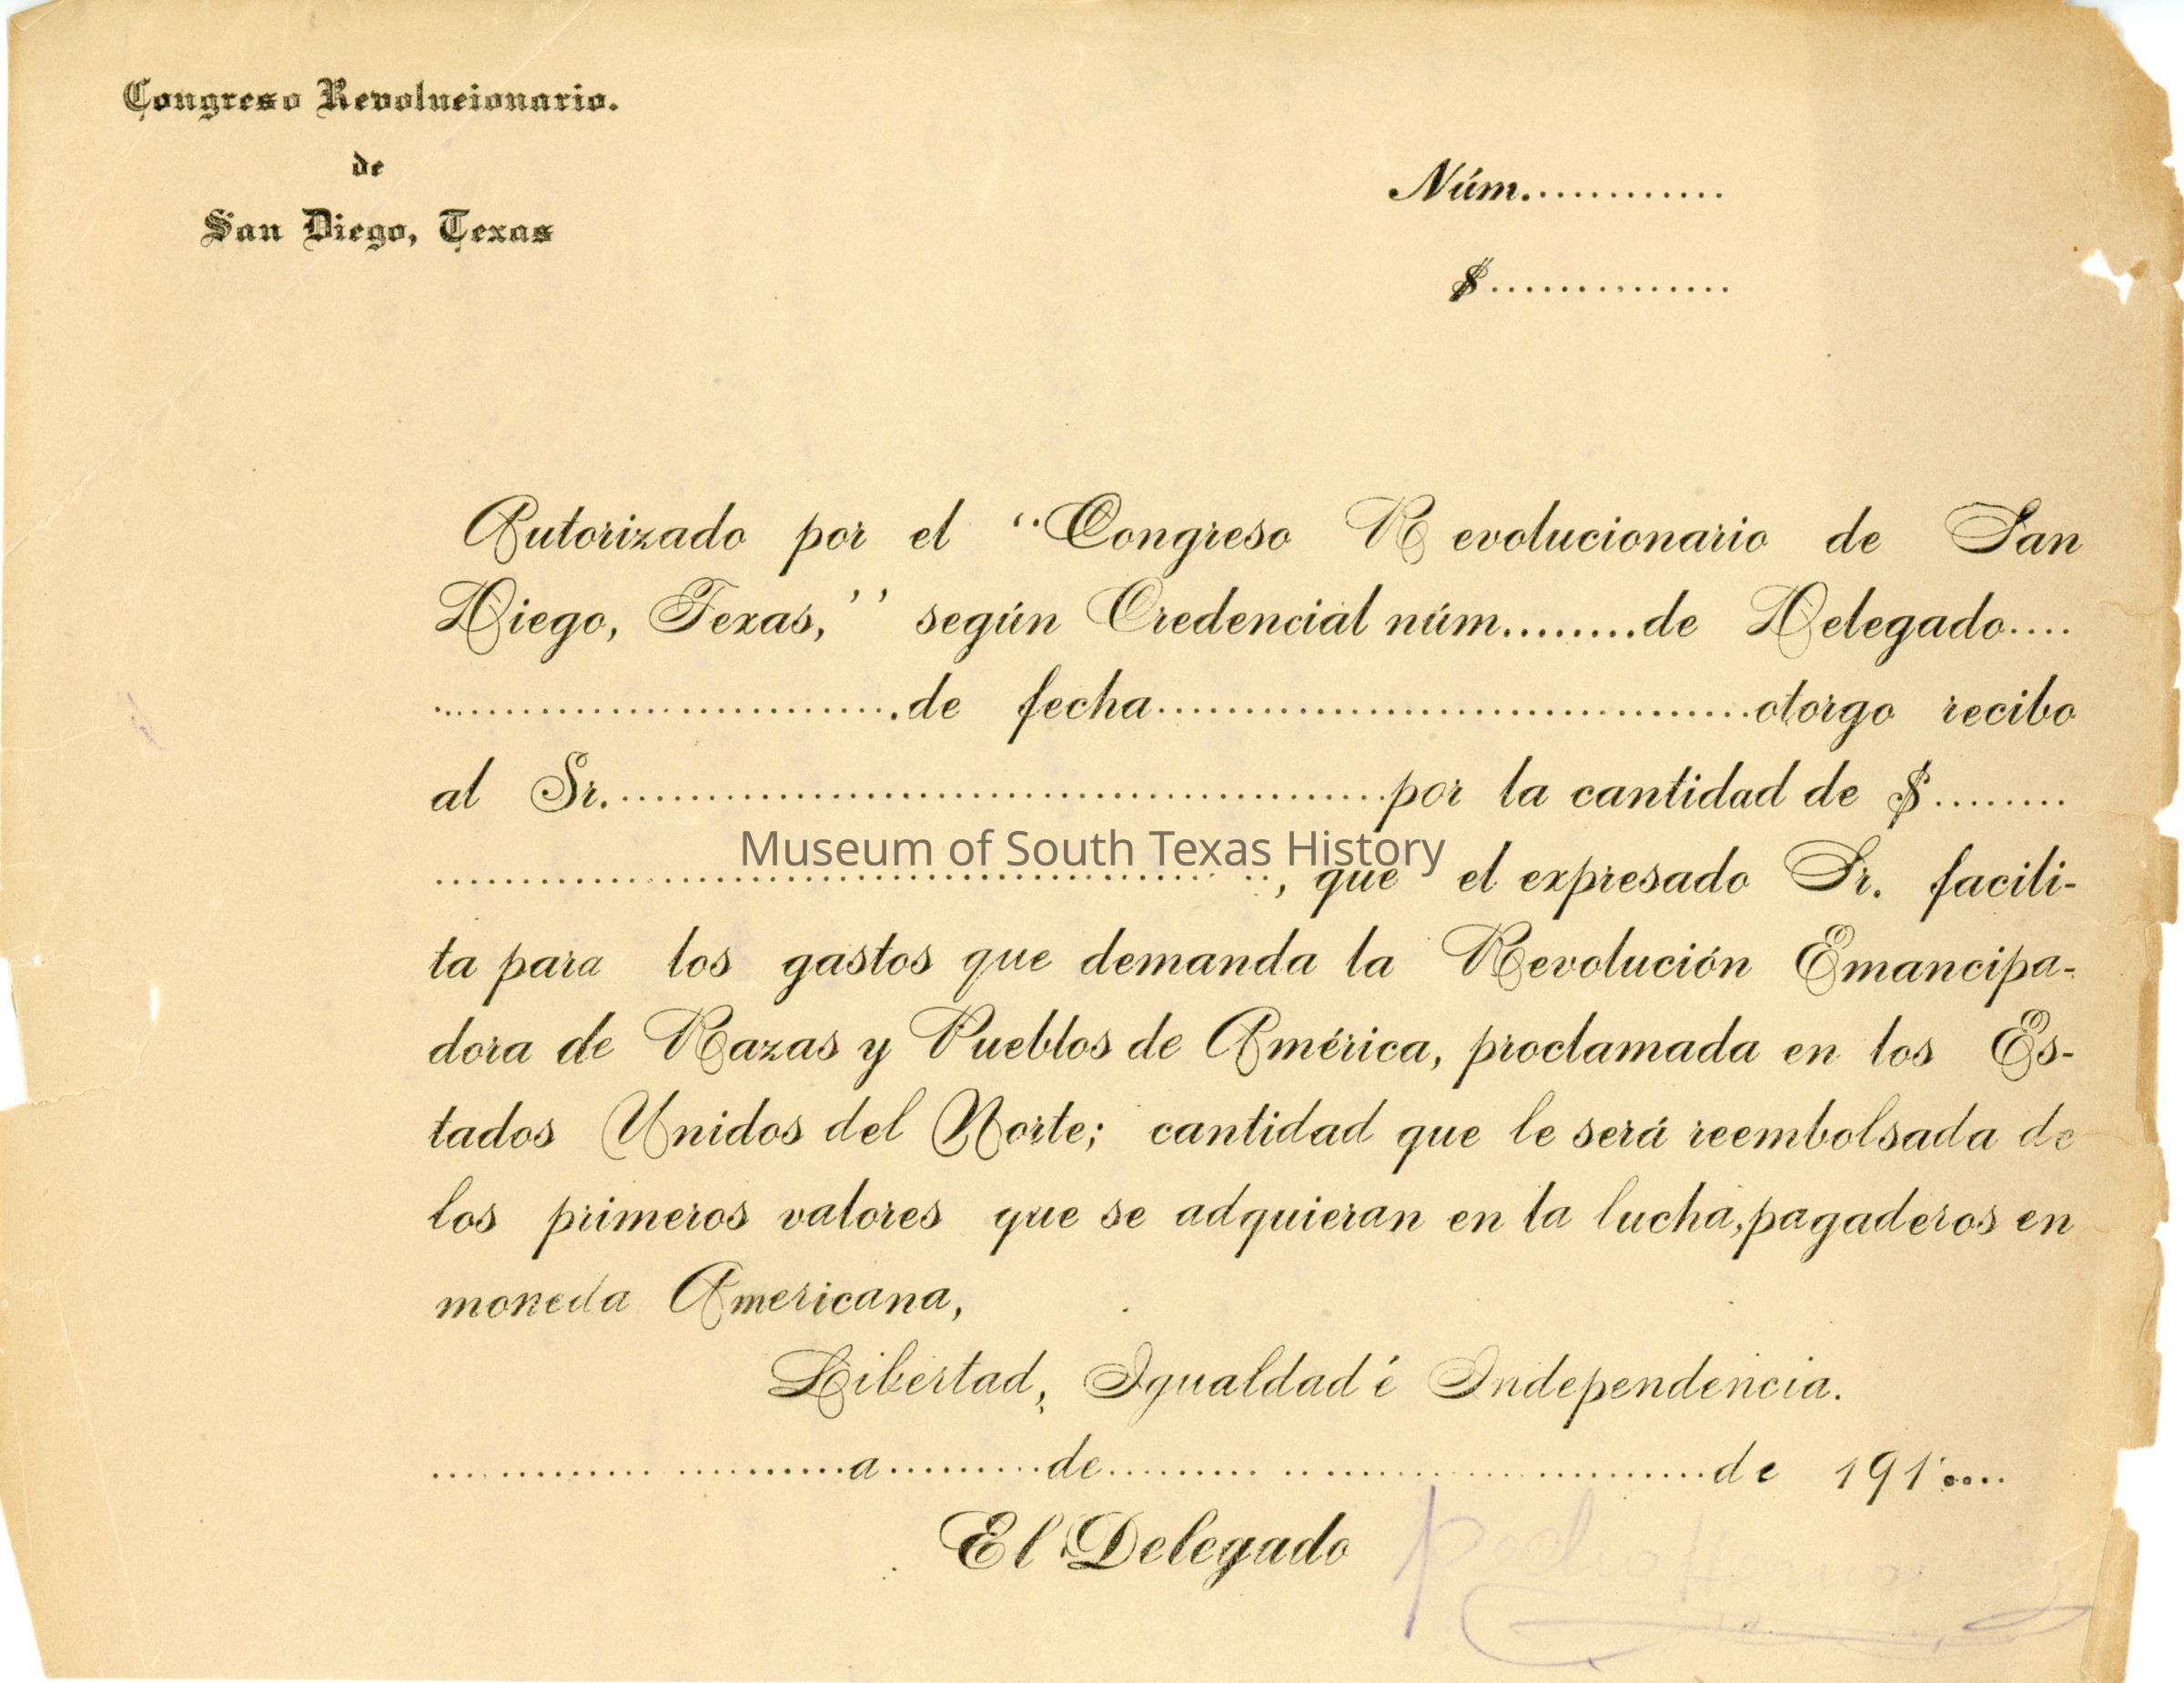 Congreso Revolucionario.
de
San Diego, Texas
Núm............
$...............
Autorizado por el “Congreso Revolucionario de San
Diego, Texas,’’ según Credencial núm.........de Delegado....
................................de fecha.........................................otorgo recibo
al Sr......................................................por la cantidad de $.........
Museum of South Texas History
........................................................, que el expresado Sr. facili-
ta para los gastos que demanda la Revolución Emancipa-
dora de Razas y Pueblos de América, proclamada en los Es-
tados Unidos del Norte; cantidad que le será reembolsada de
los primeros valores que se adquieran en la lucha, pagaderos en
moneda Americana,
Libertad, Igualdad é Independencia.
............................a...........de.........................................de 191.....
El Delegado